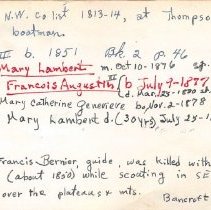 N.W. co list 1813-14, at Thompso
boatman.
III b. 1851 Bk 2 p. 46
Mary Lambert m. Oct 10-1876
Francois Augustin (b July 9-1877
(d. Mar. 25-1880
Mary Catherine Genevieve b. Nov. 2-1878
Mary Lambert d. (30yrs) July 25-1
Francis Bernier, guide, was killed with
(about 1850) while scouting in SE
over the plateaux & mts.
Bancroft